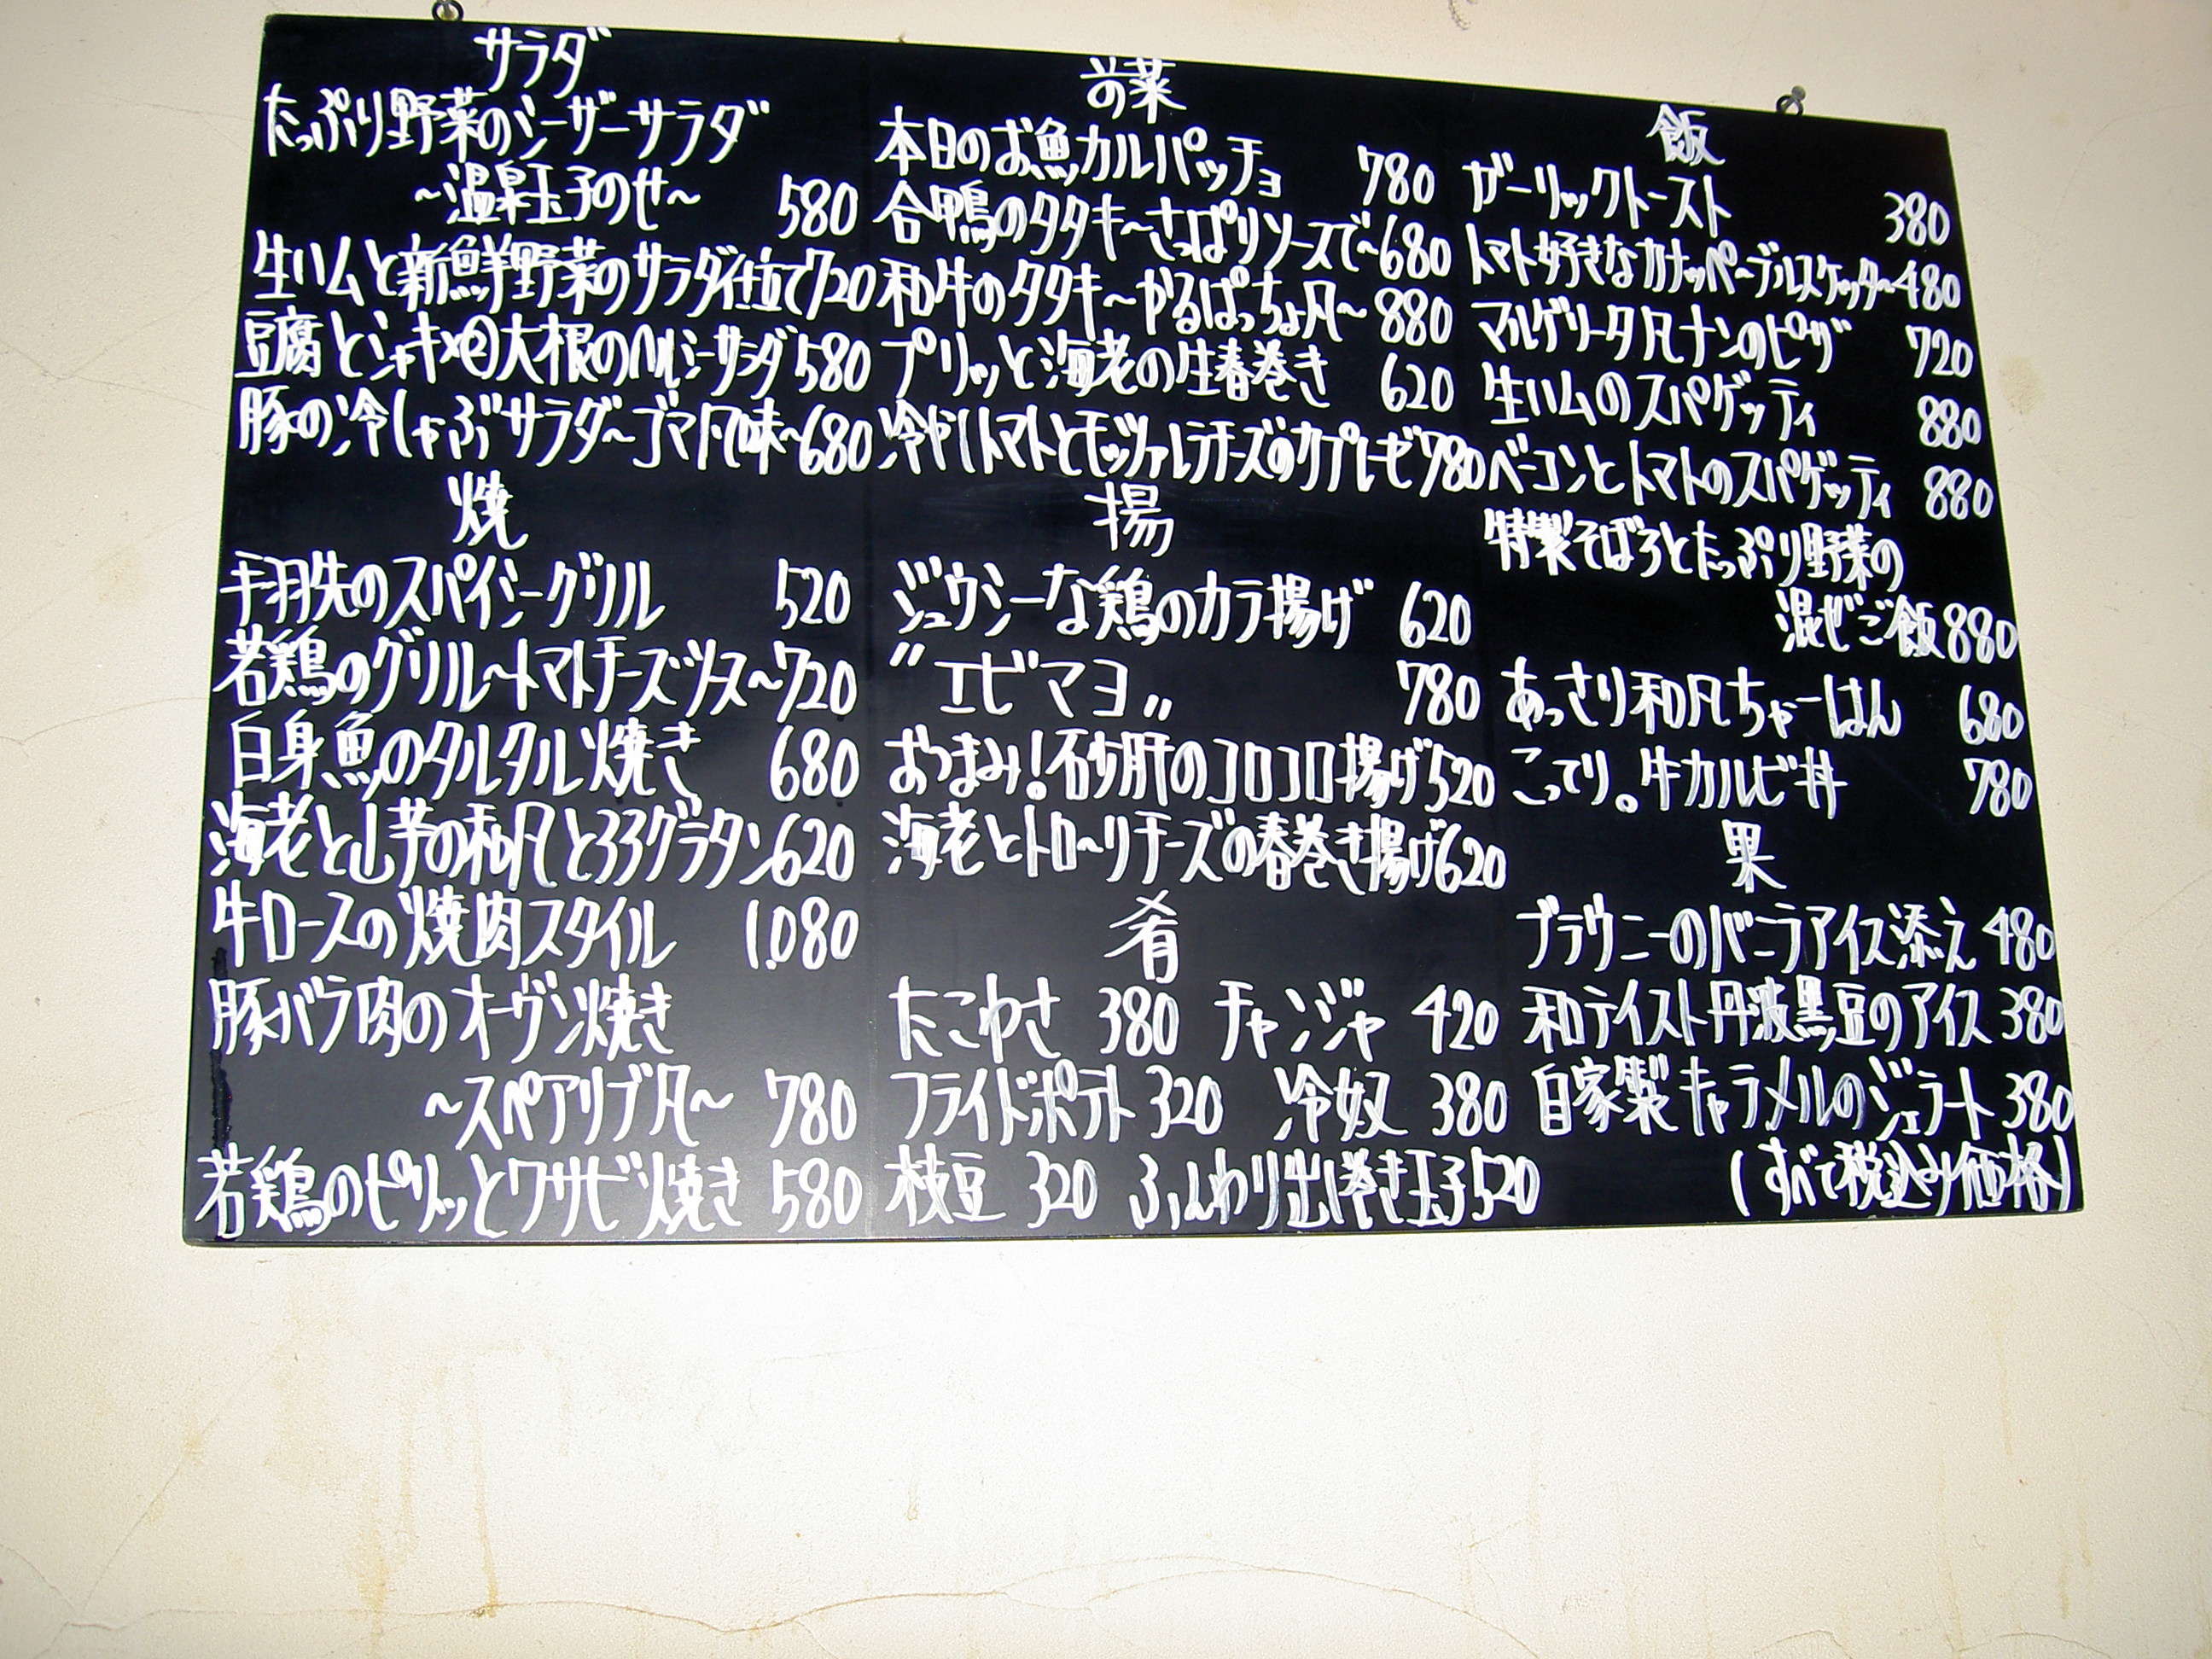 サラダ
たっぷり野菜のシーザーサラダ
～温泉玉子のせ～ 580
生ハムと新鮮野菜のサラダ仕立て 720
豆腐とシャキ×②大根のヘルシーサラダ 580
豚の冷しゃぶサラダ～ゴマ風味～ 680
焼
手羽先のスパイシーグリル 520
若鶏のグリル～トマトチーズソース～ 720
白身魚のタルタル焼き 680
海老と山芋の和風とろろグラタン 620
牛ロースの焼肉スタイル 1.080
豚バラ肉のオーヴン焼き
～スペアリブ風～ 780
若鶏のピリッとワサビ焼き 580
前菜
本日のお魚カルパッチョ 780
合鴨のタタキ～さっぱりソースで～ 680
和牛のタタキ～かるぱっちょ風～ 880
プリッと海老の生春巻き 620
冷やしトマトとモッツァレラチーズのカプレーゼ 780
揚
ジュウシーな鶏のカラ揚げ 620
〃エビマヨ〃 780
おつまみ！砂肝のコロコロ揚げ 520
海老とトロ～リチーズの春巻き揚げ 620
肴
たこわさ 380 チャンジャ 420
フライドポテト 320 冷奴 380
枝豆 320 ふんわり出し巻き玉子 520
飯
ガーリックトースト 380
トマト好きなカナッペ～ブルスケッタ～ 480
マルゲリータ風ナンのピザ 720
生ハムのスパゲッティ 880
ベーコンとトマトのスパゲッティ 880
特製そぼろとたっぷり野菜の
混ぜご飯 880
あっさり和風ちゃーはん 680
こってり。牛カルビ丼 780
果
ブラウニーのバニラアイス添え 480
和テイスト丹波黒豆のアイス 380
自家製キャラメルのジェラート 380
(すべて税込み価格)